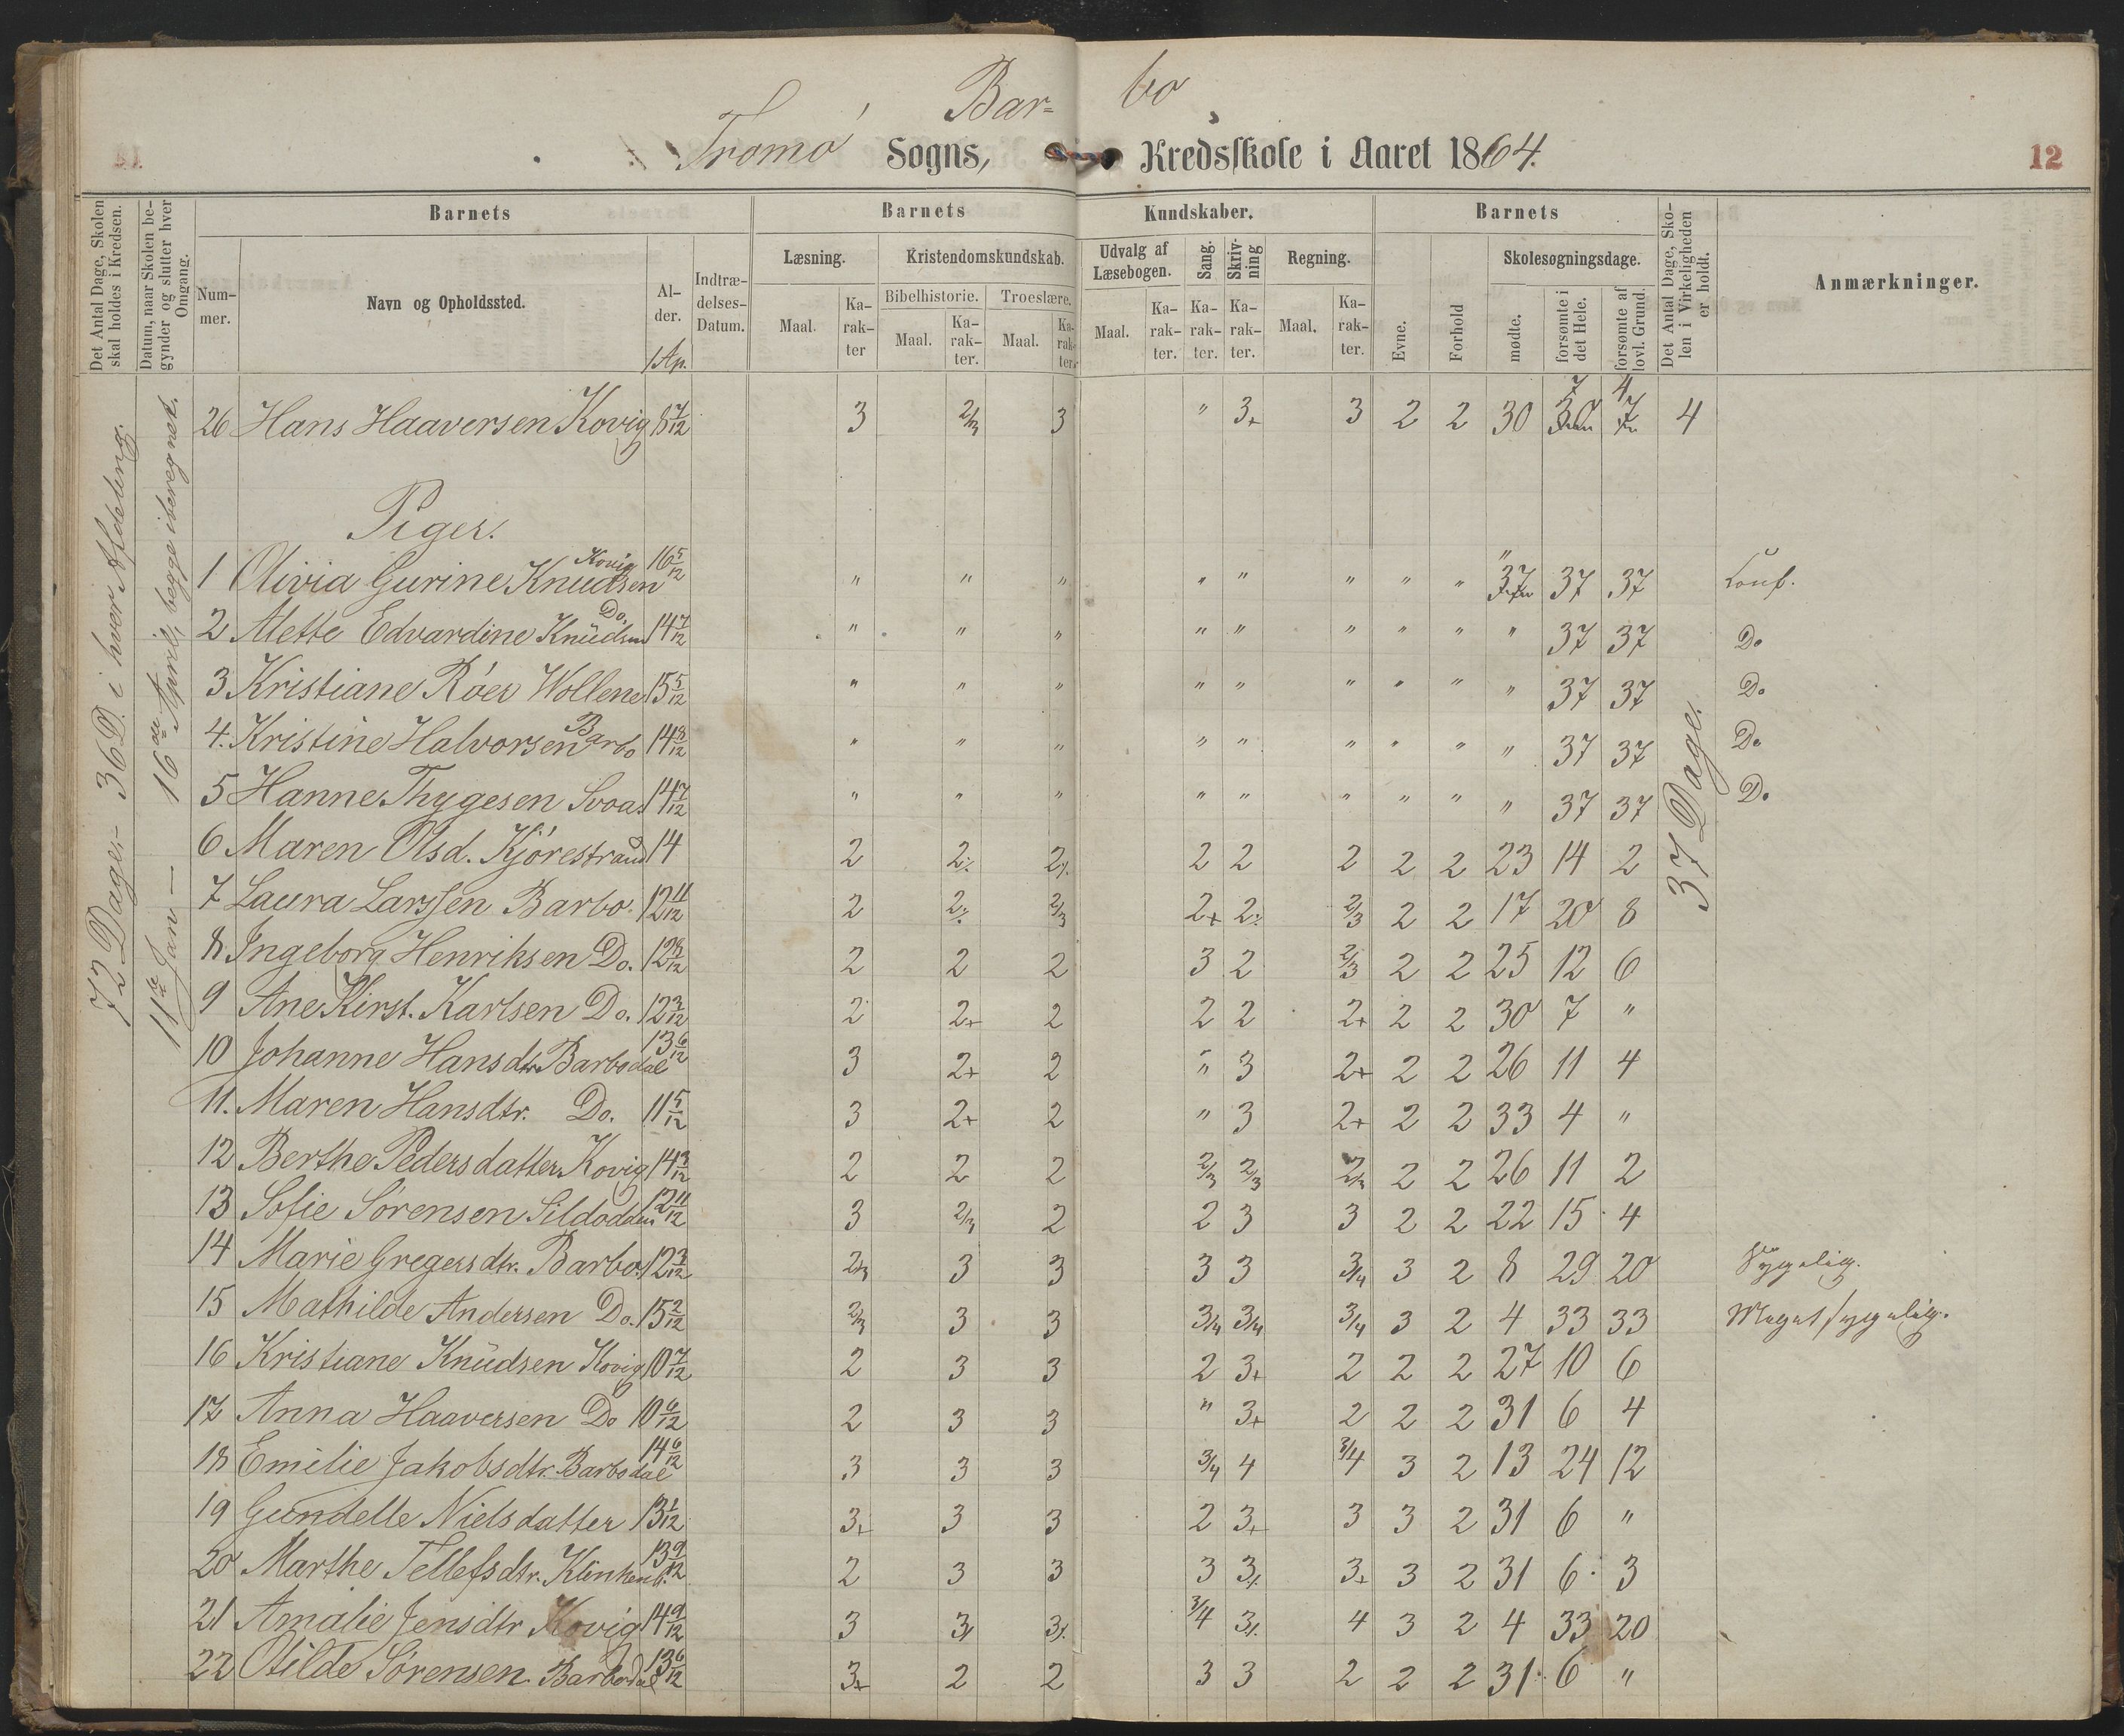 Bar= bo
Tromø Sogns, Kredsskole i Aaret 1864.
12
Det Antal Dage, Skolen skal holdes i Kredsen.
Datum, naar Skolen begynder og slutter hver Omgang.
Barnets
Barnets
Kundskaber.
Barnets
Det Antal Dage, Skolen i Virkeligheden er holdt.
Anmærkninger.
Nummer.
Navn og Opholdssted.
Alder.
1 Ap.
Indtrædelses-Datum.
Læsning.
Kristendomskundskab.
Udvalg af Læsebogen.
Sang.
Skrivning
Regning.
Evne.
Forhold
Skolesøgningsdage.
Bibelhistorie.
Troeslære.
Maal.
Karakter
Maal.
Karakter.
Maal.
Karakter.
Maal.
Karakter.
Karakter.
Karakter.
Maal.
Karakter.
mødte.
forsømte i det Hele.
forsømte af lovl. Grund.
72 Dage:- 36 D. i hver Afdeling.
11te Jan — 16de April, begge iberegnet.
26 Hans Haaversen Kovig 8 7/12 3 2/3 3 " 3+ 3 2 2 30 7 4 4
Piger.
1 Olivia Gurine Knudsen Kovig 16 5/12 " " " " " " " " " 37 37 Conf.
2 Mette Edvardine Knudsen Do. 14 7/12 " " " " " " " " " 37 37 Do
3 Kristiane Róer Wollene 15 5/12 " " " " " " " " " 37 37 Do
4. Kristine Halvorsen Barbo 14 8/12 " " " " " " " " " 37 37 Do
5 Hanne Thygesen 14 7/12 " " " " " " " " " 37 37 Do
37 Dage.
6 Maren Olsd. Kjørestrand 14 2 2% 2% 2 2 2 2 2 23 14 2
7 Laura Larssen Barbo. 12 11/12 2 2% 2/3 2+ 2% 2/3 2 2 17 20 8
8 Ingeborg Henriksen Do. 12 8/12 2 2 2 3 2 2/3 2 2 25 12 6
9 Ane Kirst. Karlsen Do. 12 3/12 2 2+ 2 2 2 2+ 2 2 30 7 "
10 Johanne Hansdtr Barbodal 13 6/12 3 2+ 2 " 3 2+ 2 2 26 11 4
11. Maren Hansdtr. Do. 11 5/12 3 2+ 2 " 3 2+ 2 2 33 4 "
12 Berthe Pedersdatter Kovig 14 3/12 2 2 2 2/3 2/3 2/3 2 2 26 11 2
13 Sofie Sørensen Sildodden 12 11/12 3 2/3 2 2 3 3 2 2 22 15 4
14 Marie Gregersdtr. Barbo. 12 3/12 2/3 3 3 3 3 3/4 3 2 8 29 20 Sygelig.
15 Mathilde Andersen Do. 15 2/12 2/3 3 3 3/4 3/4 3/4 3 2 4 33 33 Meget sygelig.
16 Kristiane Knudsen Kovig 10 7/12 2 3 3 2 3+ 2 2 2 27 10 6
17 Anna Haaversen Do 10 6/12 2 3 3 " 3+ 2 2 2 31 6 4
18 Emilie Jakobsdtr. Barbodal 14 6/12 3 3 3 3/4 4 3/4 3 2 13 24 12
19 Gundelle Nielsdatter 13 1/12 3+ 3 3 2 3+ 3 3 2 31 6 "
20 Marthe Tellefsdtr. Klinkenb. 13 9/12 2 3 3 3 3% 3+ 3 2 31 6 3
21 Amalie Jensdtr Kovig 14 9/12 3 3% 3% 3/4 3% 4 3 2 4 33 20
22 Otilde Sørensen. Barbodal 13 6/12 3+ 2 2 3 3 2 2 2 31 6 "